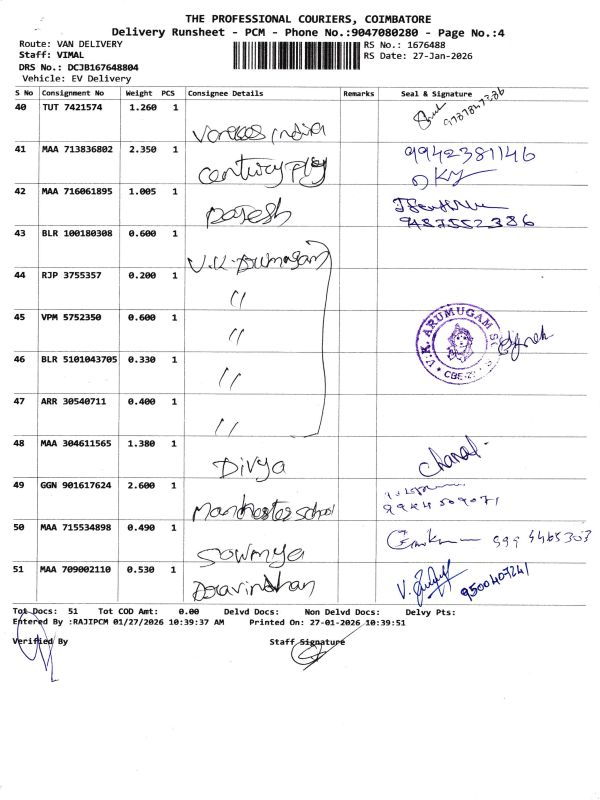 THE PROFESSIONAL COURIERS, COIMBATORE
Delivery Runsheet - PCM - Phone No.:9047080280 - Page No.:4
Route: VAN DELIVERY
RS No.: 1676488
Staff: VIMAL
RS Date: 27-Jan-2026
DRS No.: DCJB167648804
Vehicle: EV Delivery
S No Consignment No Weight PCS Consignee Details Remarks Seal & Signature
40 TUT 7421574 1.260 1
India
41 MAA 713836802 2.350 1 9942381146
Century Ply
42 MAA 716061895 1.005 1
Rajesh 9487552386
43 BLR 100180308 0.600 1
V.K. Arumugam
44 RJP 3755357 0.200 1
"
45 VPM 5752350 0.600 1
" V.K. ARUMUGAM
46 BLR 5101043705 0.330 1
" CBE
47 ARR 30540711 0.400 1
"
48 MAA 304611565 1.380 1
Divya
49 GGN 901617624 2.600 1
Manchester School
50 MAA 715534898 0.490 1
Sowmya
51 MAA 709002110 0.530 1
Aravindhan 9500407241
Tot Docs: 51 Tot COD Amt: 0.00 Delvd Docs: Non Delvd Docs: Delvy Pts:
Entered By :RAJIPCM 01/27/2026 10:39:37 AM Printed On: 27-01-2026 10:39:51
Verified By Staff Signature